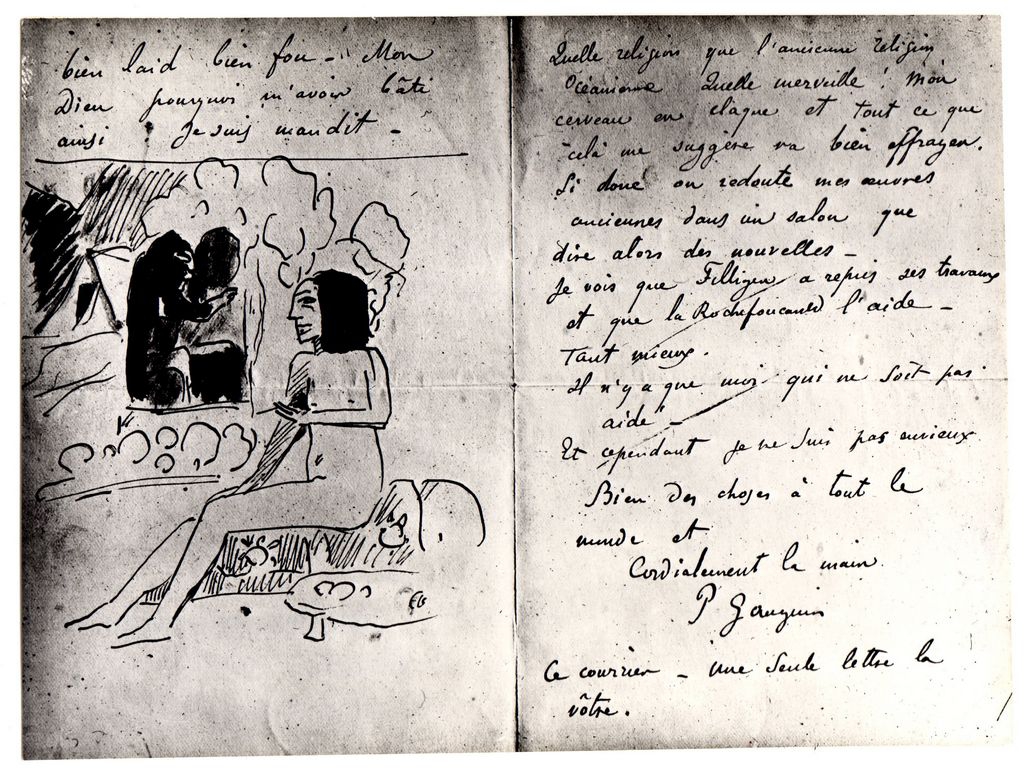 bien laid bien fou - Mon
Dieu pourquoi m'avoir bâti
ainsi ? Je suis maudit -
Quelle religion que l'ancienne religion
Océanienne Quelle merveille ! mon
cerveau en claque et tout ce que
cela me suggère va bien effrayer.
Si donc on redoute mes œuvres
anciennes dans un salon que
dire alors des nouvelles -
Je vois que Filliger a repris ses travaux
et que la Rochefoucauld l'aide -
Tant mieux.
Il n'y a que moi qui ne soit pas
aidé -
Et cependant je ne suis pas envieux
Bien des choses à tout le
monde et
Cordialement la main
P Gauguin
Ce courrier - une seule lettre la
vôtre.